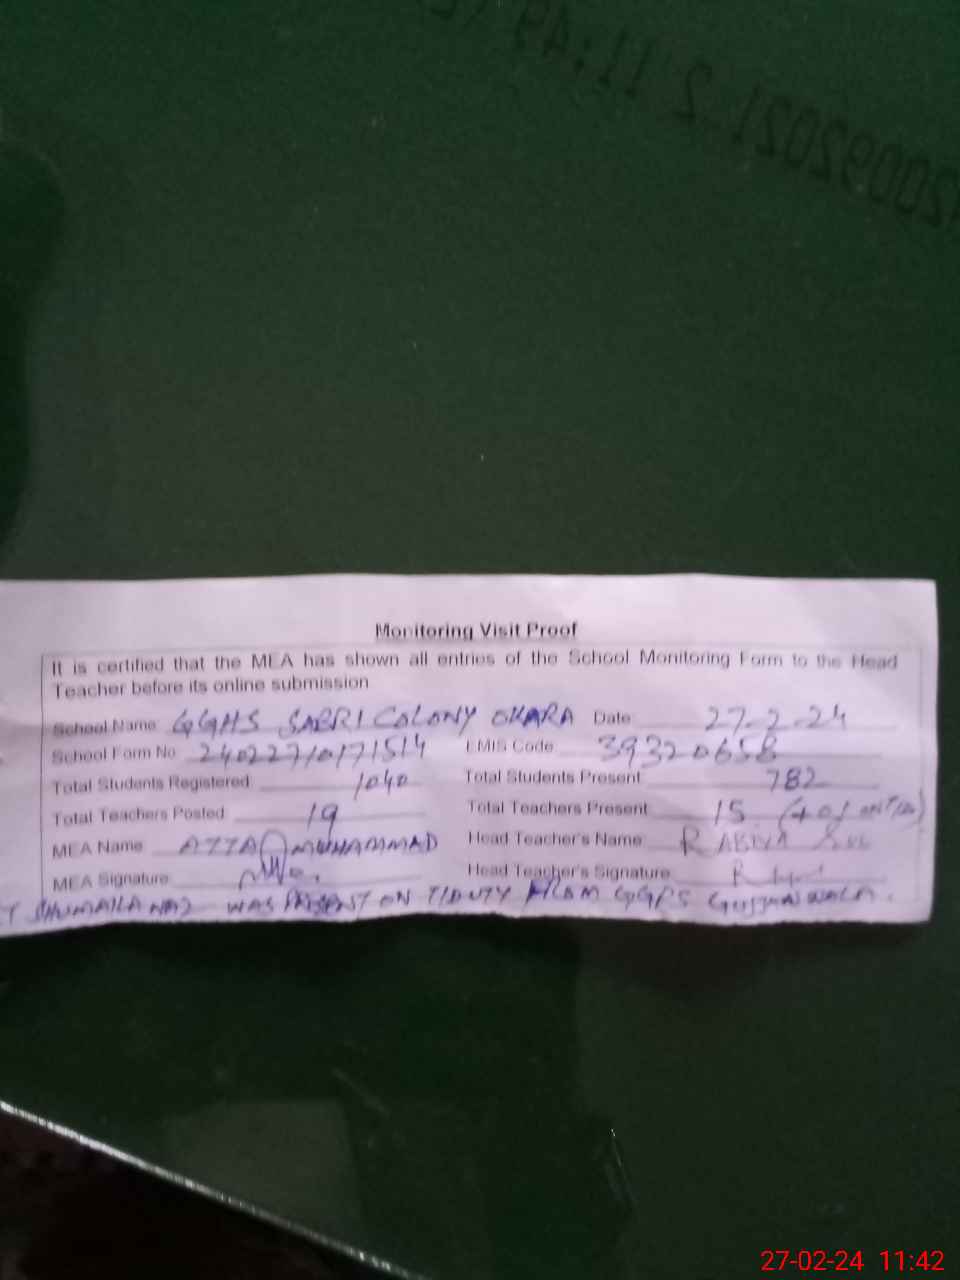 Monitoring Visit Proof
It is certified that the MEA has shown all entries of the School Monitoring Form to the Head
Teacher before its online submission
School Name GGHS SABRI COLONY OKARA Date 27-2-24
School Form No 24022710171514 EMIS Code 39320658
Total Students Registered 1040 Total Students Present 782
Total Teachers Posted 19 Total Teachers Present 15
MEA Name ATTA MUHAMMAD Head Teacher's Name RABIYA
MEA Signature Head Teacher's Signature
SHUMAILA NAZ WAS PRESENT ON T/DUTY FROM GGPS
27-02-24 11:42